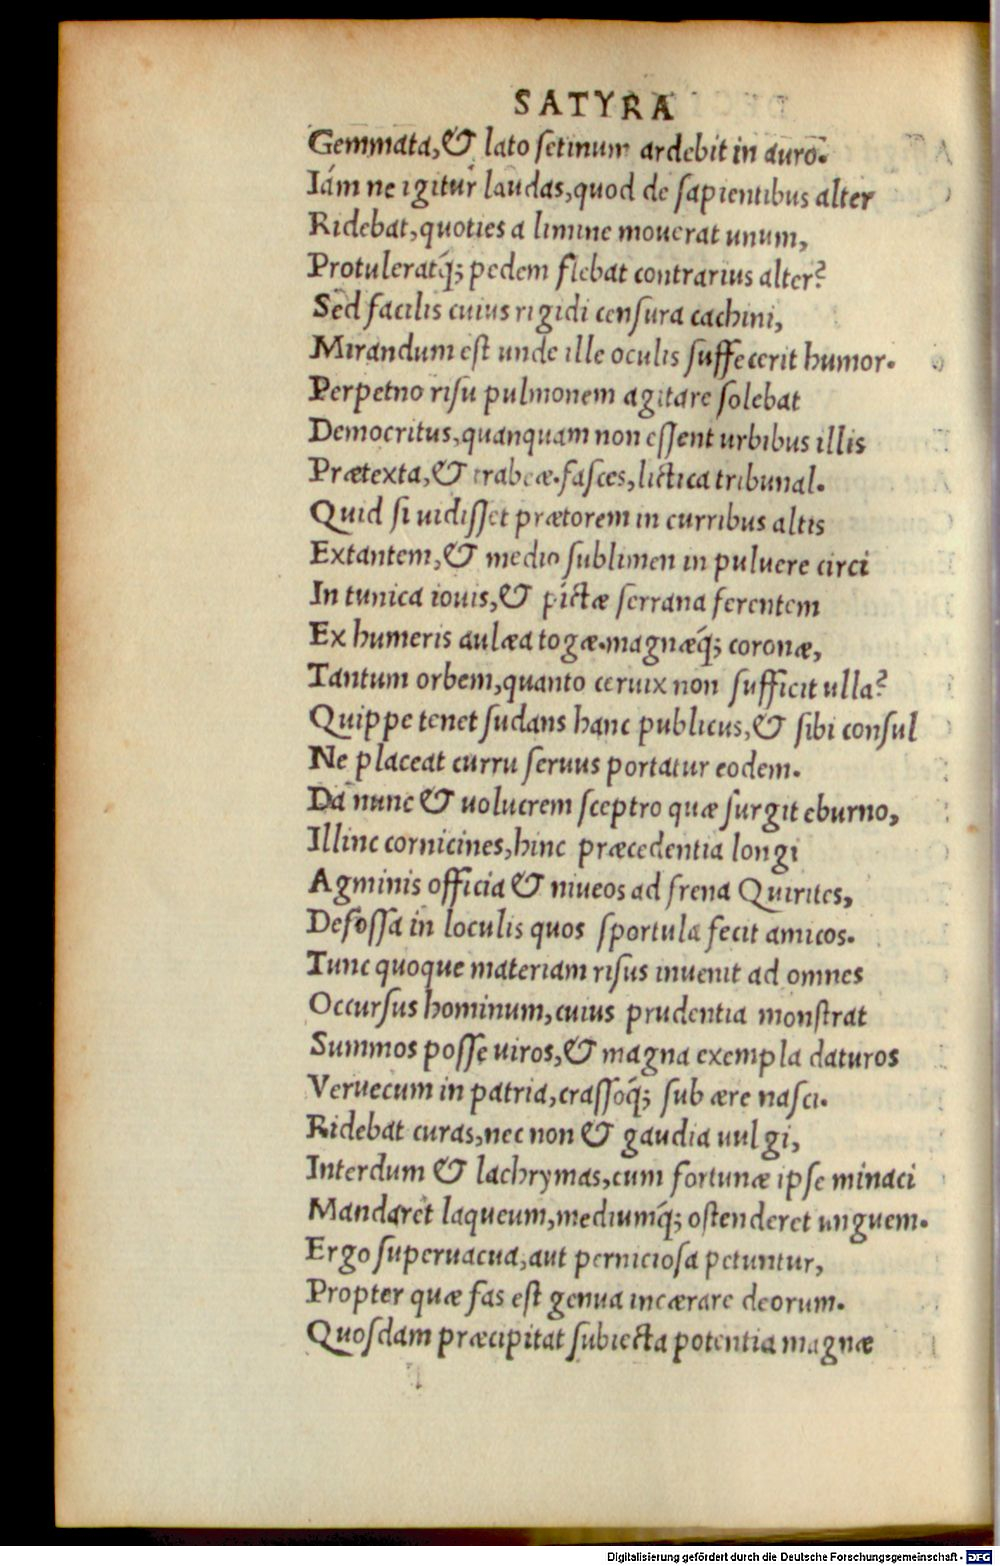 SATYRA
Gemmata,& lato ſetinum ardebit in auro.
Iám ne igitur laudas,quod de ſapientibus alter
Ridebat,quoties a limine mouerat unum,
Protuleratq́; pedem flebat contrarius alter?
Sed facilis cuius rigidi cenſura cachini,
Mirandum eſt unde ille oculis ſuffecerit humor.
Perpetno riſu pulmonem agitare ſolebat
Democritus,quanquam non eſſent urbibus illis
Prætexta,& trabeæ.faſces,lictica tribunal.
Quid ſi uidiſſet prætorem in curribus altis
Extantem,& medio ſublimen in puluere circi
In tunica iouis,& pictæ ſerrana ferentem
Ex humeris aulæa togæ.magnæq́; coronæ,
Tantum orbem,quanto ceruix non ſufficit ulla?
Quippe tenet ſudans hanc publicus,& ſibi conſul
Ne placeat curru ſeruus portatur eodem.
Da nunc & uolucrem ſceptro quæ ſurgit eburno,
Illinc cornicines,hinc præcedentia longi
Agminis officia & niueos ad frena Quirites,
Defoſſa in loculis quos ſportula fecit amicos.
Tunc quoque materiam riſus inuenit ad omnes
Occurſus hominum,cuius prudentia monſtrat
Summos poſſe uiros,& magna exempla daturos
Veruecum in patria,craſſoq́; ſub ære naſci.
Ridebat curas,nec non & gaudia uulgi,
Interdum & lachrymas,cum fortunæ ipſe minaci
Mandaret laqueum,mediumq́; oſtenderet unguem.
Ergo ſuperuacua,aut pernicioſa petuntur,
Propter quæ fas eſt genua incærare deorum.
Quoſdam præcipitat ſubiecta potentia magnæ
Digitalisierung gefördert durch die Deutsche Forschungsgemeinschaft - DFG